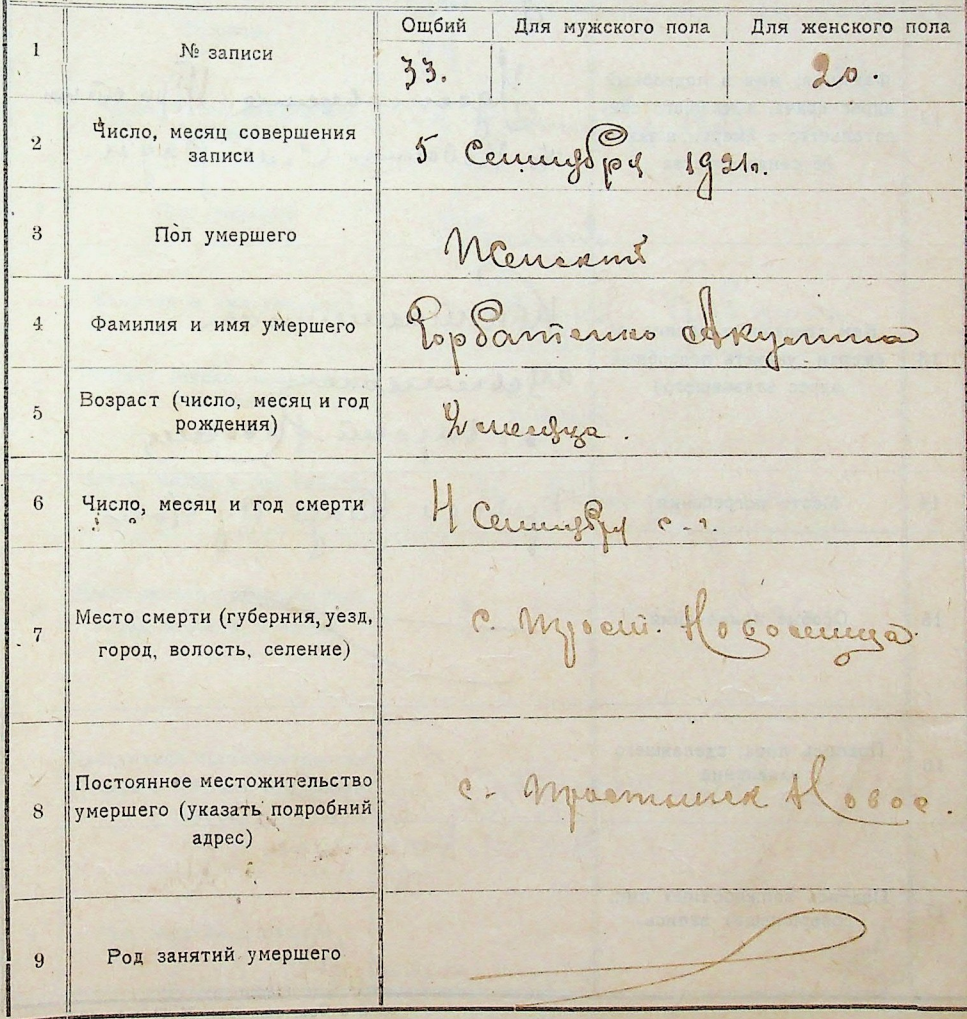 Ощбий Для мужского пола Для женского пола
1 № записи 33. 20.
2 Число, месяц совершения
записи
5 Сентября 1921г.
3 Пол умершего Женский
4 Фамилия и имя умершего Горбатенко Акулина
5 Возраст (число, месяц и год
рождения)
2 месяца.
6 Число, месяц и год смерти 4 Сентября с.-г.
7 Место смерти (губерния, уезд,
город, волость, селение)
с.
8 Постоянное местожительство
умершего (указать подробний
адрес)
с. Новос.
9 Род занятий умершего